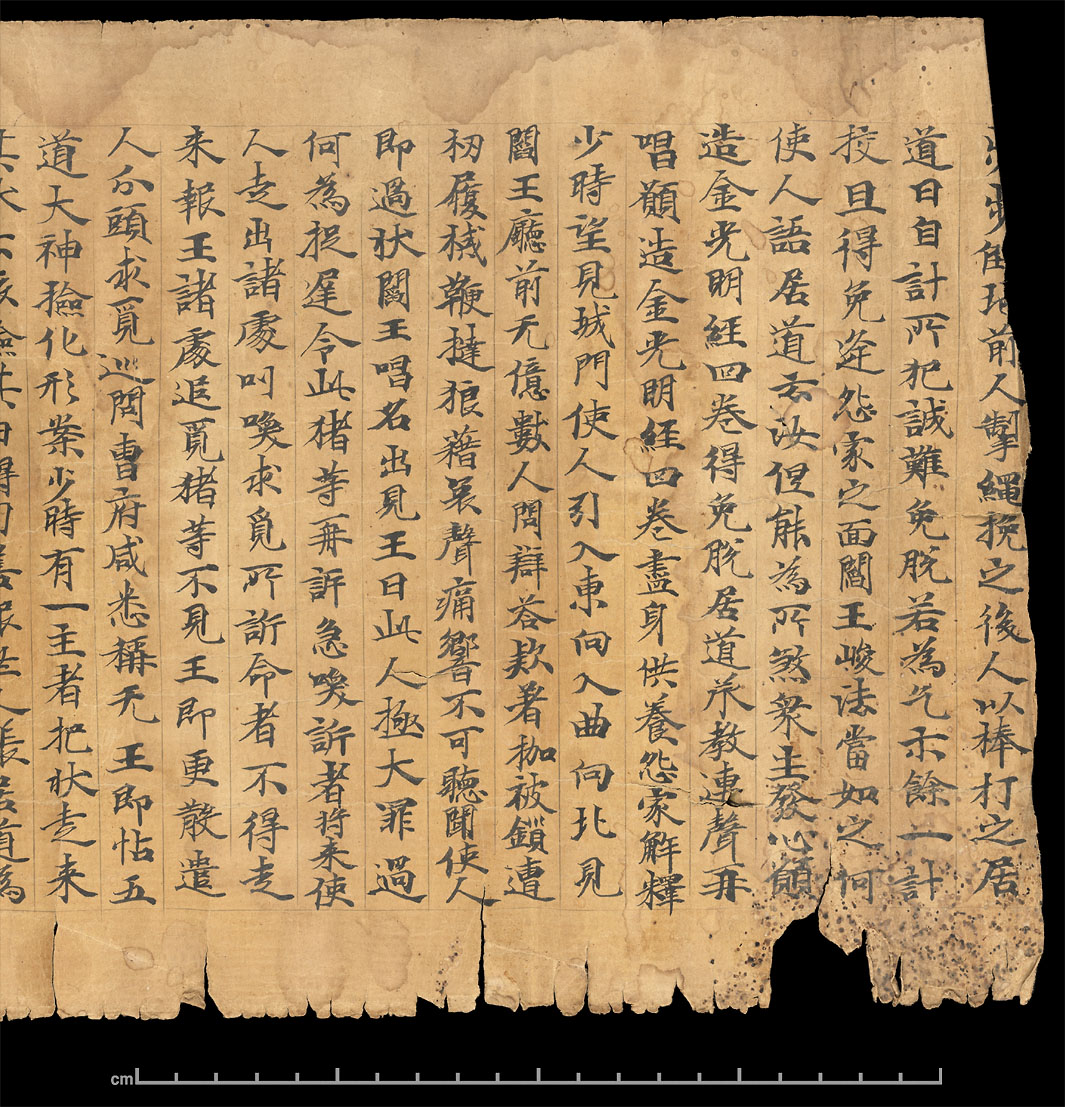 前人掣繩挽之後人以棒打之居
道曰自計所犯誠難免脫若為乞示餘一計
挍且得免逆怨家之面閻王峻法當如之何
使人語居道云汝但能為所煞衆生發心願
造金光明經四卷得免脫居道承教連聲再
唱願造金光明經四卷盡身供養怨家解釋
少時望見城門使人引入東向入曲向北見
閻王廳前无億數人問辯答款著枷被鎖遭
杻履械鞭撻狼藉哀聲痛響不可聽聞使人
即過狀閻王唱名出見王曰此人極大罪過
何為捉遲令此猪等再訴急喚訴者將来使
人走出諸處叫喚求覓所訴命者不得走
来報王諸處追覓猪等不見王即更散遣
人分頭求覓巡問曹府咸悉稱无王即帖五
道大神撿化形案少時有一主者把狀走来
cm